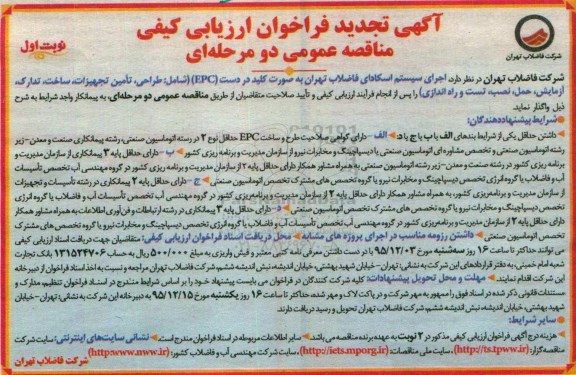 آگهی تجدید فراخوان ارزیابی کیفی
مناقصه عمومی دو مرحله‌ای
نوبت اول
شرکت فاضلاب تهران
شرکت فاضلاب تهران در نظر دارد، اجرای سیستم اسکادای فاضلاب تهران به صورت کلید در دست (EPC) (شامل: طراحی، تأمین تجهیزات، ساخت، تدارک،
آزمایش، حمل، نصب، تست و راه اندازی) را پس از انجام فرآیند ارزیابی کیفی و تأیید صلاحیت متقاضیان از طریق مناقصه عمومی دو مرحله‌ای، به پیمانکار واجد شرایط به شرح
ذیل واگذار نماید.
شرایط پیشنهاددهندگان:
داشتن حداقل یکی از شرایط بندهای الف یا ب یا ج یا د: الف- دارای گواهی صلاحیت طرح و ساخت EPC حداقل نوع ۲ در رشته اتوماسیون صنعتی، رشته پیمانکاری صنعت و معدن-زیر
رشته اتوماسیون صنعتی و تخصص مشاوره‌ای اتوماسیون صنعتی یا دیسپاچینگ و مخابرات نیرو از سازمان مدیریت و برنامه ریزی کشور ب- دارای حداقل پایه ۳ پیمانکاری از سازمان مدیریت و
برنامه ریزی کشور در رشته صنعت و معدن-زیر رشته اتوماسیون صنعتی به همراه مشاور همکار دارای حداقل پایه ۲ از سازمان مدیریت و برنامه ریزی کشور در گروه مهندسی آب تخصص تأسیسات
آب و فاضلاب یا گروه انرژی تخصص دیسپاچینگ و مخابرات نیرو یا گروه تخصص های مشترک تخصص اتوماسیون صنعتی ج- دارای حداقل پایه ۲ پیمانکاری در رشته تأسیسات و تجهیزات
از سازمان مدیریت و برنامه‌ریزی کشور به همراه مشاور همکار دارای حداقل پایه ۲ از سازمان مدیریت و برنامه‌ریزی کشور در گروه مهندسی آب تخصص تأسیسات آب و فاضلاب یا گروه انرژی
تخصص دیسپاچینگ و مخابرات نیرو یا گروه تخصص های مشترک تخصص اتوماسیون صنعتی د- دارای حداقل پایه ۳ پیمانکاری در رشته ارتباطات و فن‌آوری اطلاعات به همراه مشاور همکار
دارای حداقل پایه ۲ از سازمان مدیریت و برنامه‌ریزی کشور در گروه مهندسی آب تخصص تأسیسات آب و فاضلاب یا گروه انرژی تخصص دیسپاچینگ و مخابرات نیرو یا گروه تخصص های مشترک
تخصص اتوماسیون صنعتی داشتن رزومه مناسب در اجرای پروژه های مشابه محل دریافت اسناد فراخوان ارزیابی کیفی: متقاضیان جهت دریافت اسناد ارزیابی کیفی
می توانند حداکثر تا ساعت ۱۶ روز سه‌شنبه مورخ ۹۵/۱۲/۰۳ با در دست داشتن معرفی نامه کتبی معتبر و فیش واریزی به مبلغ ۵۰۰/۰۰۰ ریال به حساب ۱۳۱۵۲۴۷۰۶ بانک تجارت
شعبه امام خمینی، به دفتر قراردادهای این شرکت به نشانی: تهران- خیابان شهید بهشتی، خیابان اندیشه، نبش اندیشه ششم، شرکت فاضلاب تهران مراجعه و نسبت به اخذ اسناد فراخوان از دبیرخانه
این شرکت اقدام نمایند. مهلت و محل تحویل پیشنهادات: کلیه شرکت کنندگان در فراخوان می بایست پیشنهاد خود را بر اساس شرایط مندرج در اسناد فراخوان تنظیم، مدارک و
مستندات قانونی ذکر شده در اسناد فوق را ممهور به مهر شرکت و در پاکت لاک و مهر شده، حداکثر تا ساعت ۱۶ روز یکشنبه مورخ ۹۵/۱۲/۱۵ به دبیرخانه این شرکت به نشانی: تهران-خیابان
شهید بهشتی، خیابان اندیشه، نبش اندیشه ششم، شرکت فاضلاب تهران تحویل و رسید دریافت دارند.
سایر شرایط:
هزینه درج آگهی فراخوان ارزیابی کیفی مذکور در ۲ نوبت به عهده برنده مناقصه می باشد. سایر اطلاعات مربوطه در اسناد فراخوان مندرج است. نشانی سایت‌های اینترنتی: سایت شرکت
مناقصه گزار: (http://ts.tpww.ir)، سایت ملی مناقصات: (http://iets.mporg.ir)، سایت شرکت مهندسی آب و فاضلاب کشور: (http:www.nww.ir)
شرکت فاضلاب تهران